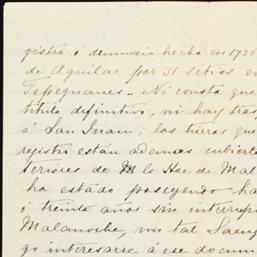 gistro ó denuncio hecho en 1736
de Aguilar por 31 sitios en
Tepeguanes_ Ni consta que
titulo definitivo, ni hay tras
á San Juan; las tierras que
registro están ademas cubiert
teriores de M la Hac de Mal
ha estado poseyendo ha
ó treinta años sin interrup
Malanoche, un tal Saenz
go interesarse á ese docum